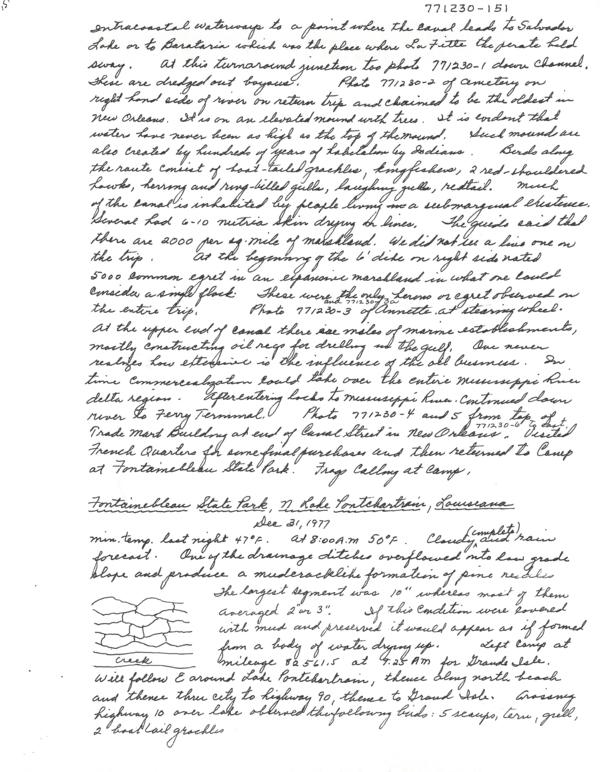 771230-151
Intracoastal Waterways to a point where the canal leads to Salvador
Lake or to Barataria which was the place where La Fitte the pirate held
sway. At this turnaround junction too photo 771230-1 down channel.
These are dredged out bayous. Photo 771230-2 of cemetery on
right hand side of river on return trip and chaimed to be the oldest in
New Orleans. It is on an elevated mound with trees. It is evident that
waters have never been as high as the top of the mound. Such mound are
also created by hundreds of years of habitation by Indians. Birds along
the route consist of boat-tailed grackles, kingfishers, 2 red-shouldered
hawks, herring and ring-billed gulls, laughing gulls, redtail. Much
of the canal is inhabited by people living in a submarginal existence.
Several had 6-10 nutria skin drying on lines. The guide said that
there are 2000 per sq. mile of marshland. We did not see a live one on
the trip. At the beginning of the 6' dike on right side noted
5000 common egret in an expansive marshland in what one could
consider a single flock. These were the only herons or egret observed on
the entire trip. Photo 771230-3 and 771230-3a of Annette at stearing wheel.
At the upper end of canal there are miles of marine establishments,
mostly constructing oil regs for drilling in the gulf. One never
realizes how extensive is the influence of the oil business. In
time commercialization could take over the entire Mississippi River
delta region. After entering locks to Mississippi River. Continued down
river to Ferry Terminal. Photo 771230-4 and 5 from top of
Trade Mart Building at end of Canal Street in New Orleans. 771230-6 to East. Visited
French Quarters for some final purchases and then returned to Camp
at Fontainebleau State Park. Frogs Calling at Camp.
Fontainebleau State Park, N Lake Pontchartrain, Louisiana
Dec 31, 1977
min. temp. last night 47°F. At 8:00 A.M 50°F. Cloudy (complete) and rain
forecast. One of the drainage ditches overflowed into low grade
slope and produce a mudcracklike formation of pine needles
The largest segment was 10" whereas most of them
averaged 2" or 3". If this condition were covered
with mud and preserved it would appear as if formed
from a body of water drying up. Left Camp at
creek
mileage 82561.5 at 9:25 AM for Grande Isle.
Will follow E around Lake Pontchartrain, thence along north beach
and thence thru city to highway 90, thence to Grand Isle. Crossing
highway 10 over lake observed the following birds: 5 scaups, tern, gull,
2 boat tail grackles